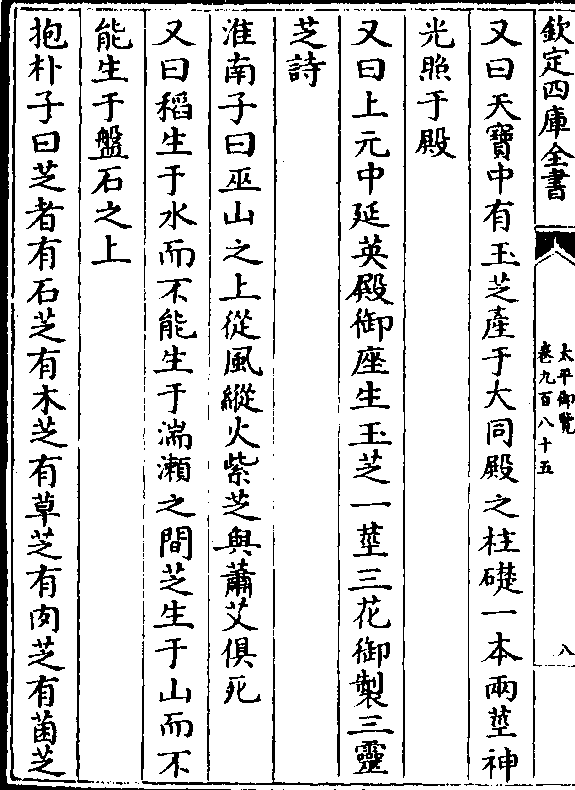 欽定四庫全書
太平御覽
卷九百八十五
八
又曰天寶中有玉芝產于大同殿之柱礎一本兩莖神
光照于殿
又曰上元中延英殿御座生玉芝一莖三花御製三靈
芝詩
淮南子曰巫山之上從風縱火紫芝與蕭艾俱死
又曰稻生于水而不能生于湍瀬之間芝生于山而不
能生于盤石之上
抱朴子曰芝者有石芝有木芝有草芝有肉芝有菌芝